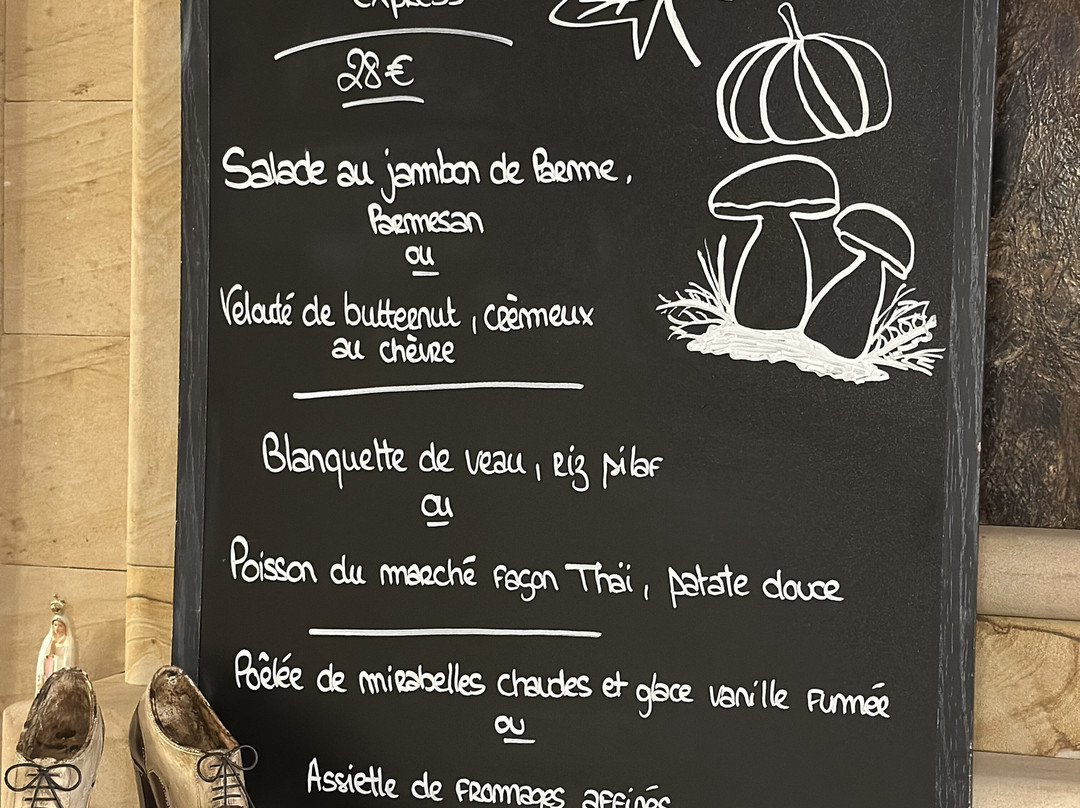 express
28€
Salade au jambon de Parme,
Parmesan
ou
Velouté de butternut, crèmeux
au chèvre
Blanquette de veau, riz pilaf
ou
Poisson du marché façon Thaï, patate douce
Poêlée de mirabelles chaudes et glace vanille fumée
ou
Assiette de fromages affinés